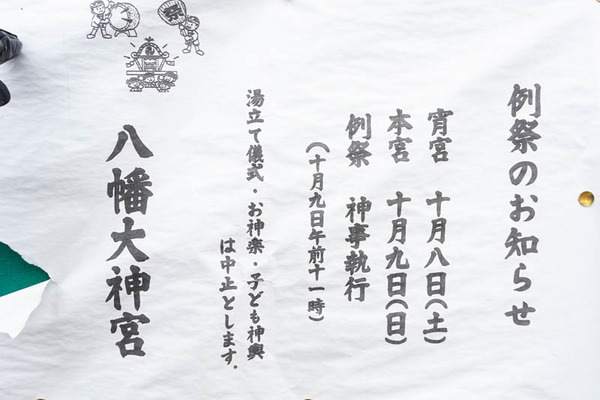 例祭のお知らせ
宵宮 十月八日(土)
本宮 十月九日(日)
例祭 神事執行
(十月九日午前十一時)
湯立て儀式・お神楽・子ども神輿
は中止とします。
八幡大神宮
祭